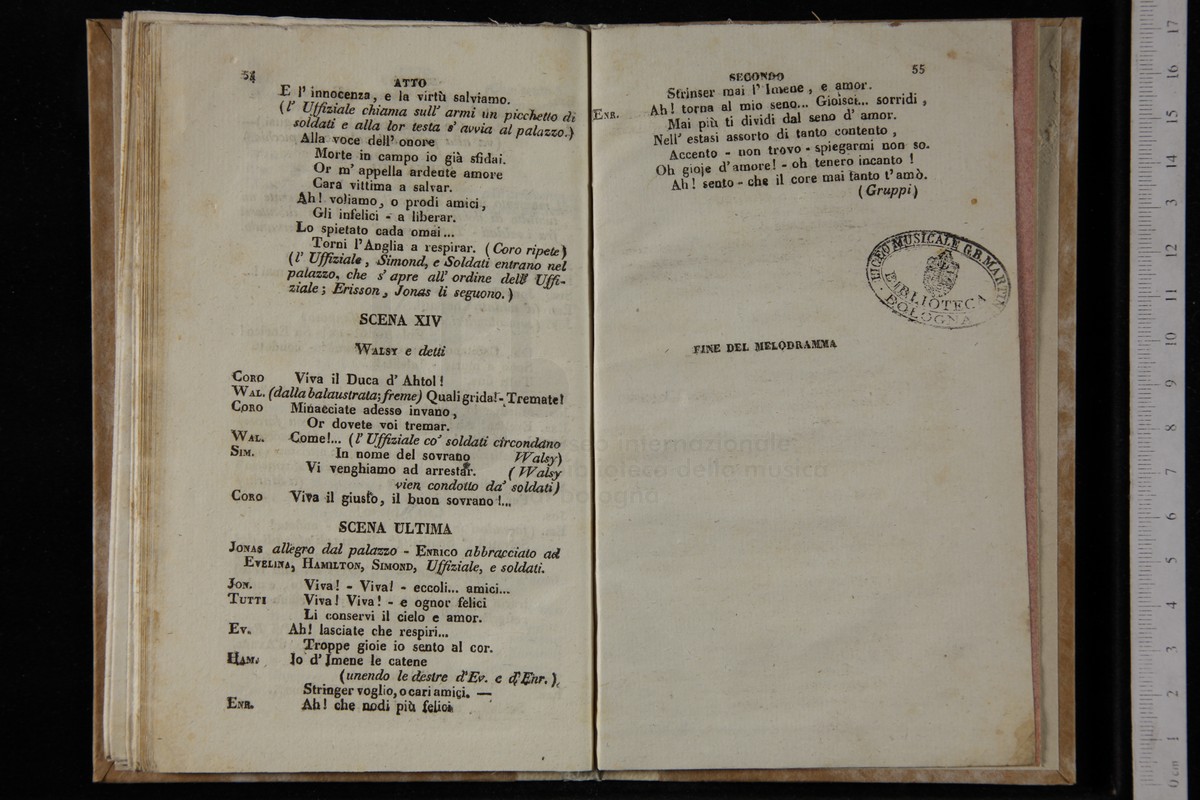 54
ATTO
E l' innocenza, e la virtù salviamo.
(l' Uffiziale chiama sull' armi un picchetto di
soldati e alla lor testa s' avvia al palazzo.)
Alla voce dell' onore
Morte in campo io già sfidai.
Or m' appella ardente amore
Cara vittima a salvar.
Ah! voliamo, o prodi amici,
Gli infelici - a liberar.
Lo spietato cada omai...
Torni l'Anglia a respirar. (Coro ripete)
(l' Uffiziale, Simond, e Soldati entrano nel
palazzo, che s' apre all' ordine dell' Uffi-
ziale; Erisson, Jonas li seguono.)
SCENA XIV
WALSY e detti
CORO Viva il Duca d' Ahtol!
WAL. (dalla balaustrata; freme) Quali grida!- Tremate!
CORO Minacciate adesso invano,
Or dovete voi tremar.
WAL. Come!... (l' Uffiziale co' soldati circondano
SIM. In nome del sovrano Walsy)
Vi venghiamo ad arrestar. (Walsy
vien condotto da' soldati)
CORO Viva il giusto, il buon sovrano!...
SCENA ULTIMA
JONAS allegro dal palazzo - ENRICO abbracciato ad
EVELINA, HAMILTON, SIMOND, Uffiziale, e soldati.
JON. Viva! - Viva! - eccoli... amici...
TUTTI Viva! Viva! - e ognor felici
Li conservi il cielo e amor.
EV. Ah! lasciate che respiri...
Troppe gioie io sento al cor.
HAM. Io d' Imene le catene
(unendo le destre d'Ev. e d'Enr.)
Stringer voglio, o cari amici. —
ENR. Ah! che nodi più felici
SECONDO
55
Strinser mai l' Imene, e amor.
ENR. Ah! torna al mio seno... Gioisci... sorridi,
Mai più ti dividi dal seno d' amor.
Nell' estasi assorto di tanto contento,
Accento - non trovo - spiegarmi non so.
Oh gioje d'amore! - oh tenero incanto!
Ah! sento - che il core mai tanto t'amò.
(Gruppi)
LICEO MUSICALE G.B. MARTINI
BIBLIOTECA
BOLOGNA
FINE DEL MELODRAMMA
museo internazionale
biblioteca della musica
bologna
0 cm 1 2 3 4 5 6 7 8 9 10 11 12 13 14 15 16 17